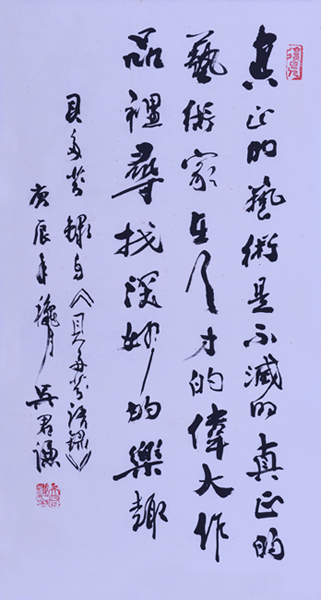 真正的藝術是不滅的真正的
藝術家在天才的偉大作
品裡尋找深妙的樂趣
貝多芬 錄自《貝多芬語錄》
庚辰年 月 吳君謙